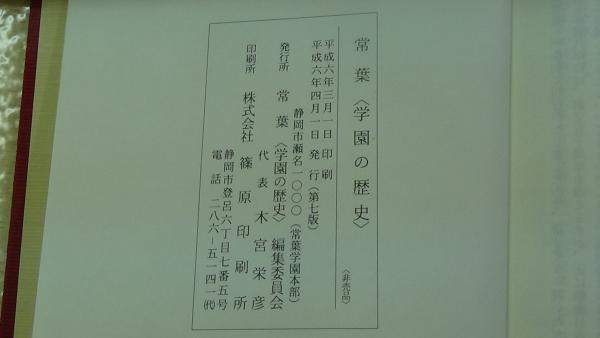 常葉〈学園の歴史〉
〈非売品〉
平成六年三月一日 印刷
平成六年四月一日 発行（第七版）
静岡市瀬名一〇〇〇（常葉学園本部）
発行所 常葉〈学園の歴史〉編集委員会
代表 木宮栄彦
印刷所 株式会社 篠原印刷所
静岡市登呂六丁目七番五号
電話 二八六－五一四一（代）